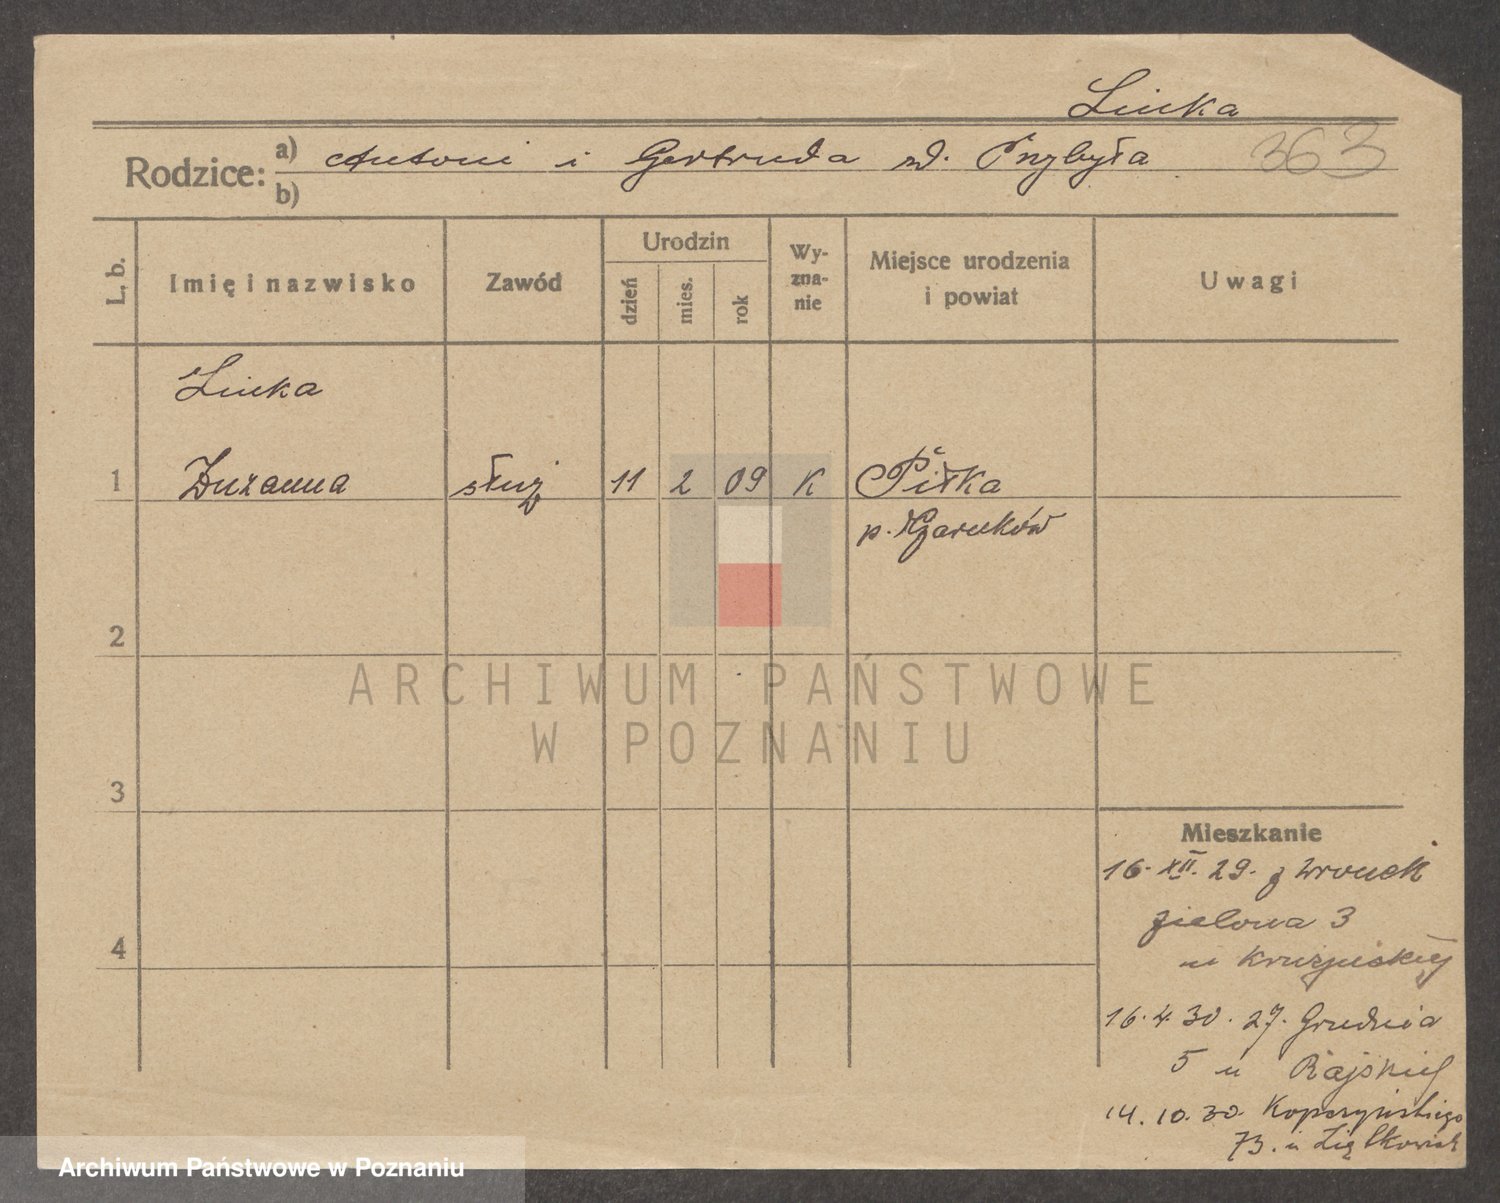 Linka
Rodzice: a) Antoni i Gertruda zd. Przybyła 363
b)
L. b. Imię i nazwisko Zawód Urodzin dzień mies. rok Wy-zna-nie Miejsce urodzenia i powiat Uwagi
Linka
1 Zuzanna służ 11 2 09 K Piłka
p. Czarnków
2
3
4
Mieszkanie
16. XII. 29. z Wronek
Zielona 3
u
16. 4. 30. 27. Grudnia
5 u Rajskiej
14. 10. 30.
73. u
ARCHIWUM PAŃSTWOWE
W POZNANIU
Archiwum Państwowe w Poznaniu